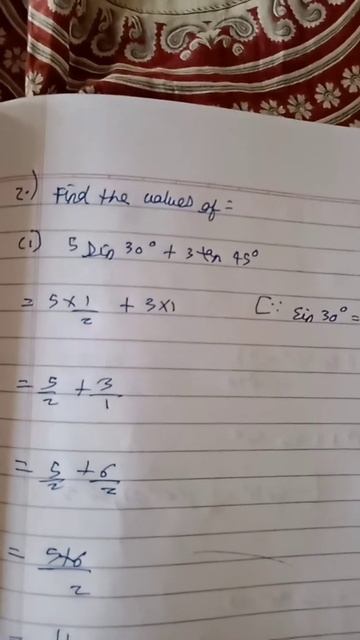 2.) Find the values of =
(i) 5 sin 30° + 3 tan 45°
= 5 × 1/2 + 3×1 [∵ sin 30° =
= 5/2 + 3/1
= 5/2 + 6/2
= 5+6/2